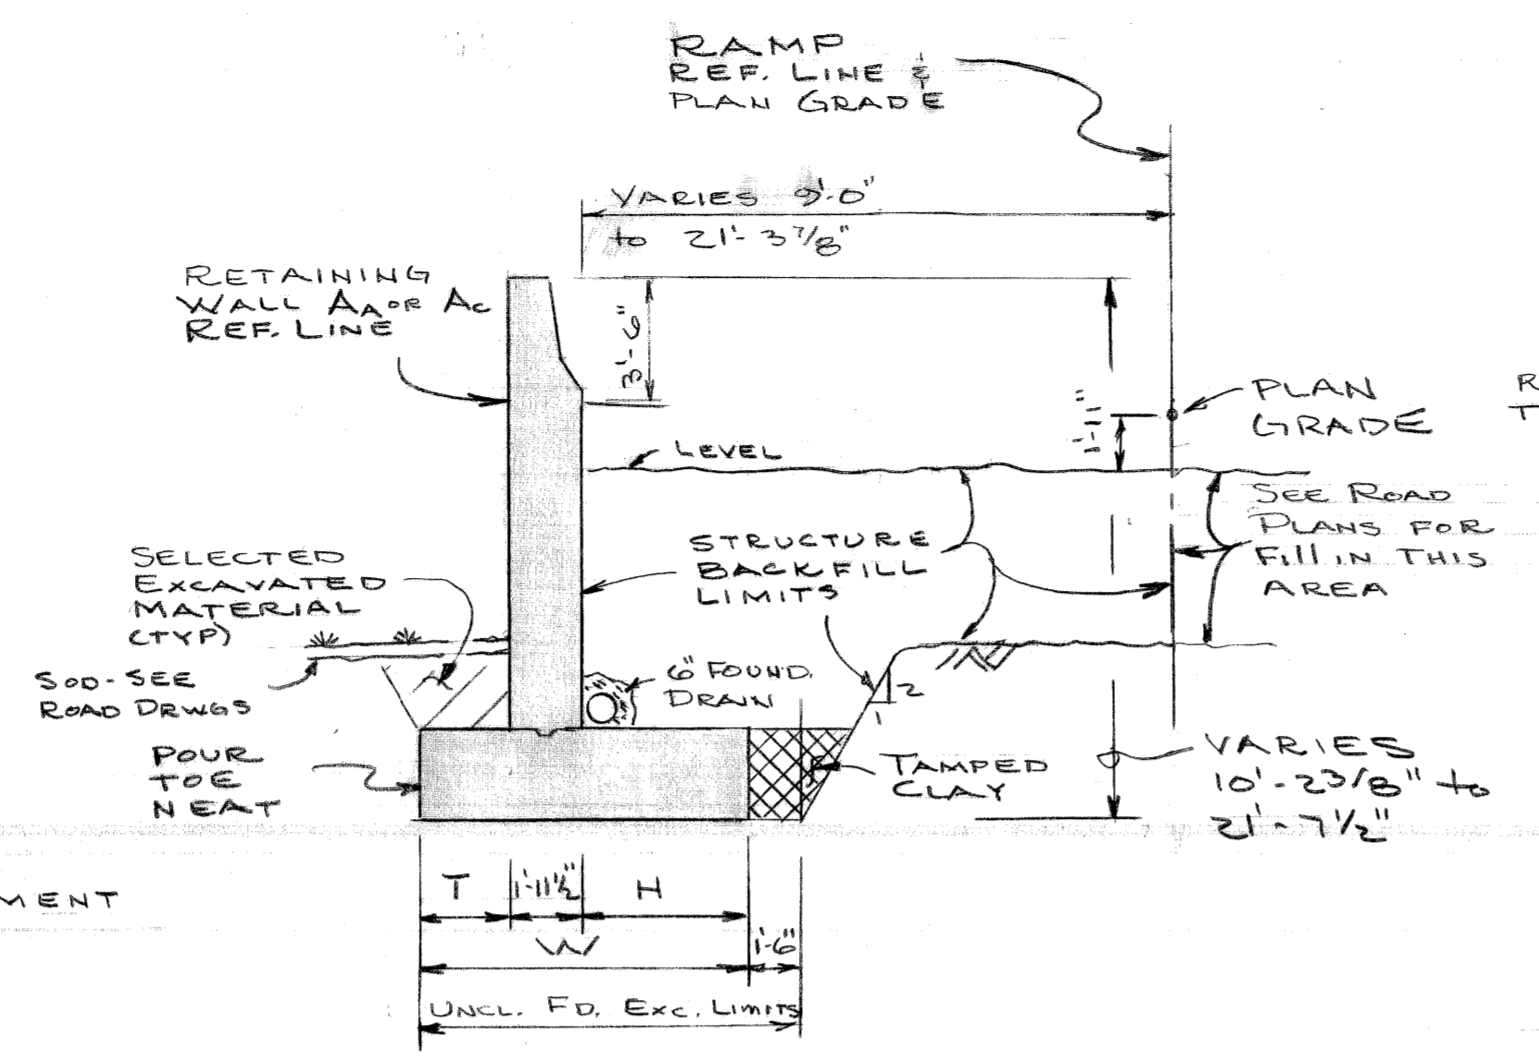 RAMP
REF. LINE &
PLAN GRADE
VARIES 9'-0"
to 21'-3 7/8"
RETAINING
WALL AA OR AC
REF. LINE
3'-6"
1'-11"
PLAN
GRADE
R
T
LEVEL
SEE ROAD
PLANS FOR
Fill IN THIS
AREA
STRUCTURE
BACKFILL
LIMITS
SELECTED
EXCAVATED
MATERIAL
(TYP)
SOD-SEE
ROAD DRWGS
6" FOUND.
DRAIN
2
1
POUR
TOE
NEAT
TAMPED
CLAY
VARIES
10'-2 3/8" to
21'-7 1/2"
MENT
T
1'-11 1/2"
H
W
1'-6"
UNCL. FD. EXC. LIMITS